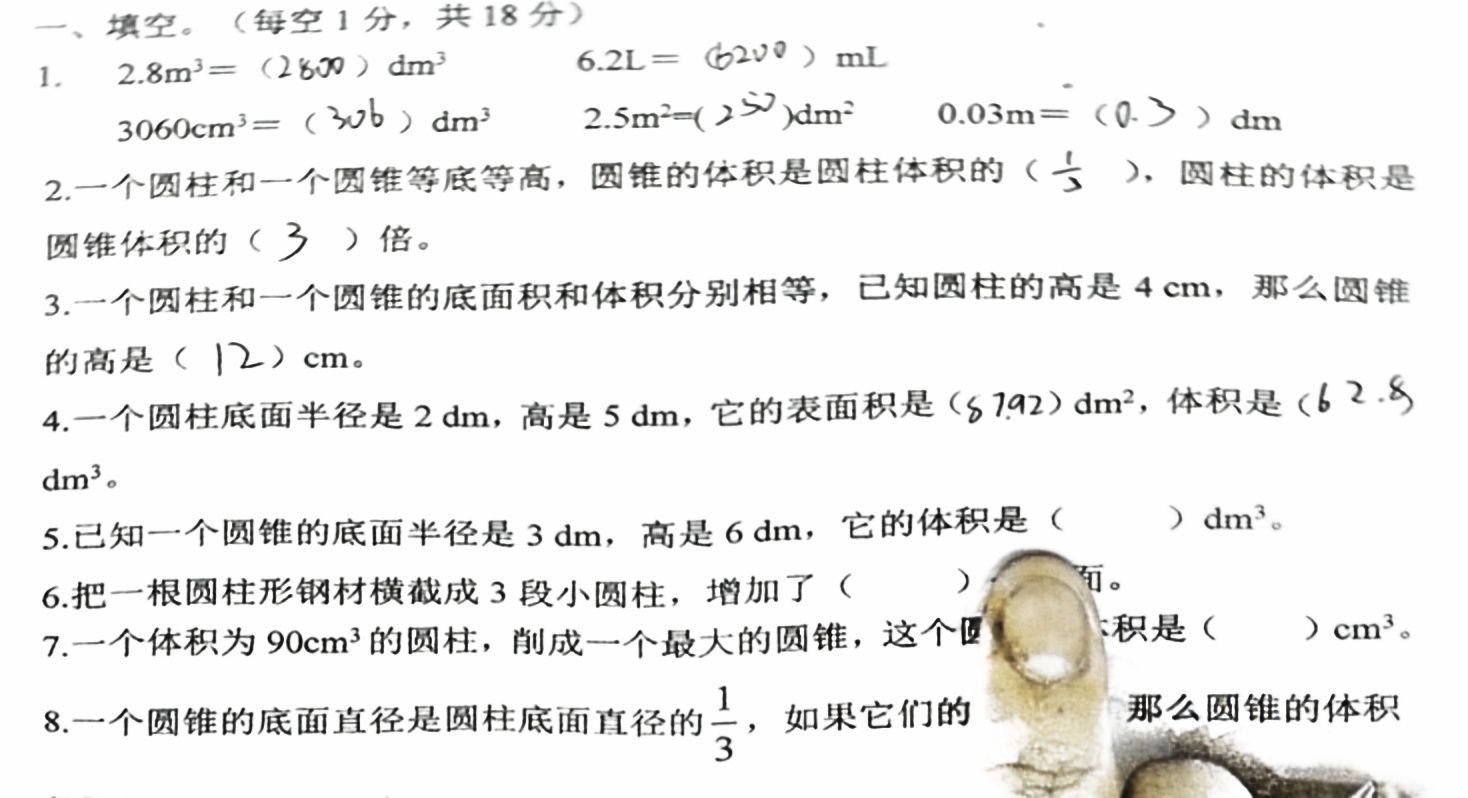 一、填空。（每空 1 分，共 18 分）
1. 2.8m³＝（2800）dm³ 6.2L＝（6200）mL
3060cm³＝（306）dm³ 2.5m²=(250)dm² 0.03m＝（0.3）dm
2.一个圆柱和一个圆锥等底等高，圆锥的体积是圆柱体积的（1/3），圆柱的体积是
圆锥体积的（3）倍。
3.一个圆柱和一个圆锥的底面积和体积分别相等，已知圆柱的高是 4 cm，那么圆锥
的高是（12）cm。
4.一个圆柱底面半径是 2 dm，高是 5 dm，它的表面积是（87.92）dm²，体积是（62.8）
dm³。
5.已知一个圆锥的底面半径是 3 dm，高是 6 dm，它的体积是（ ）dm³。
6.把一根圆柱形钢材横截成 3 段小圆柱，增加了（ ）面。
7.一个体积为 90cm³ 的圆柱，削成一个最大的圆锥，这个 积是（ ）cm³。
8.一个圆锥的底面直径是圆柱底面直径的 1/3，如果它们的 那么圆锥的体积